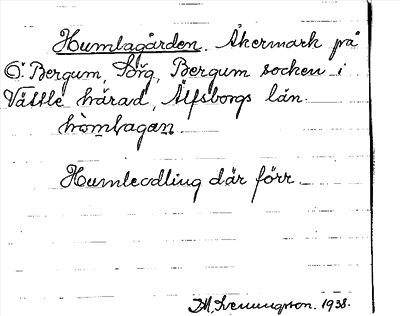 Humlagården. Åkermark på
Ö. Bergum, Sörg, Bergum socken i
Vättle härad, Älfsborgs län.
hòmlagan
Humleodling där förr
M. Svenungsson. 1938.